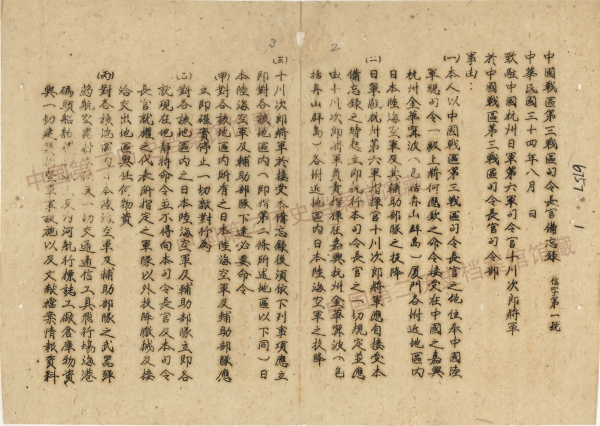 中國戰區第三戰區司令長官備忘錄 信字第一號
中華民國三十四年八月 日
致駐中國杭州日軍第六軍司令官十川次郎將軍
於中國戰區第三戰區司令長官司令部
事由：
(一)本人以中國戰區第三戰區司令長官之地位奉中國陸
軍總司令一級上將何應欽之命令接受在中國之嘉興
杭州金華寧波(包括舟山群島)廈門各附近地區内
日本陸海空軍及其輔助部隊之投降
(二)日軍駐杭州第六軍指揮官十川次郎將軍應自接受本
備忘錄之時起立即執行本司令長官之一切規定並應
由十川次郎將軍負責指揮在嘉興杭州金華寧波(包
括舟山群島)各附近地區内日本陸海空軍之投降
(三)十川次郎將軍於接受本備忘錄後須依下列事項應立
即對各該地區内(即指第二條所述地區以下同)日
本陸海空軍及輔助部隊下達必要命令
(甲)對各該地區内所有之日本陸海空軍及輔助部隊應
立即確實停止一切敵對行為
(乙)對各該地區内之日本陸海空軍及輔助部隊立即各
就現在地靜待命令並不得向本司令長官及本司令
長官就權之代表所指定之軍隊以外投降繳械及接
洽交出地區與任何物資
(丙)對各該地區内日本陸海空軍及輔助部隊之武器彈
藥航空器材 及一切交通通信工具飛行場海港
碼頭船舶 及内河航行標誌工廠倉庫物資
與一切建築 軍事設施以及文獻檔案情報資料
3
2
1
6157
中国第二历史档案馆馆藏